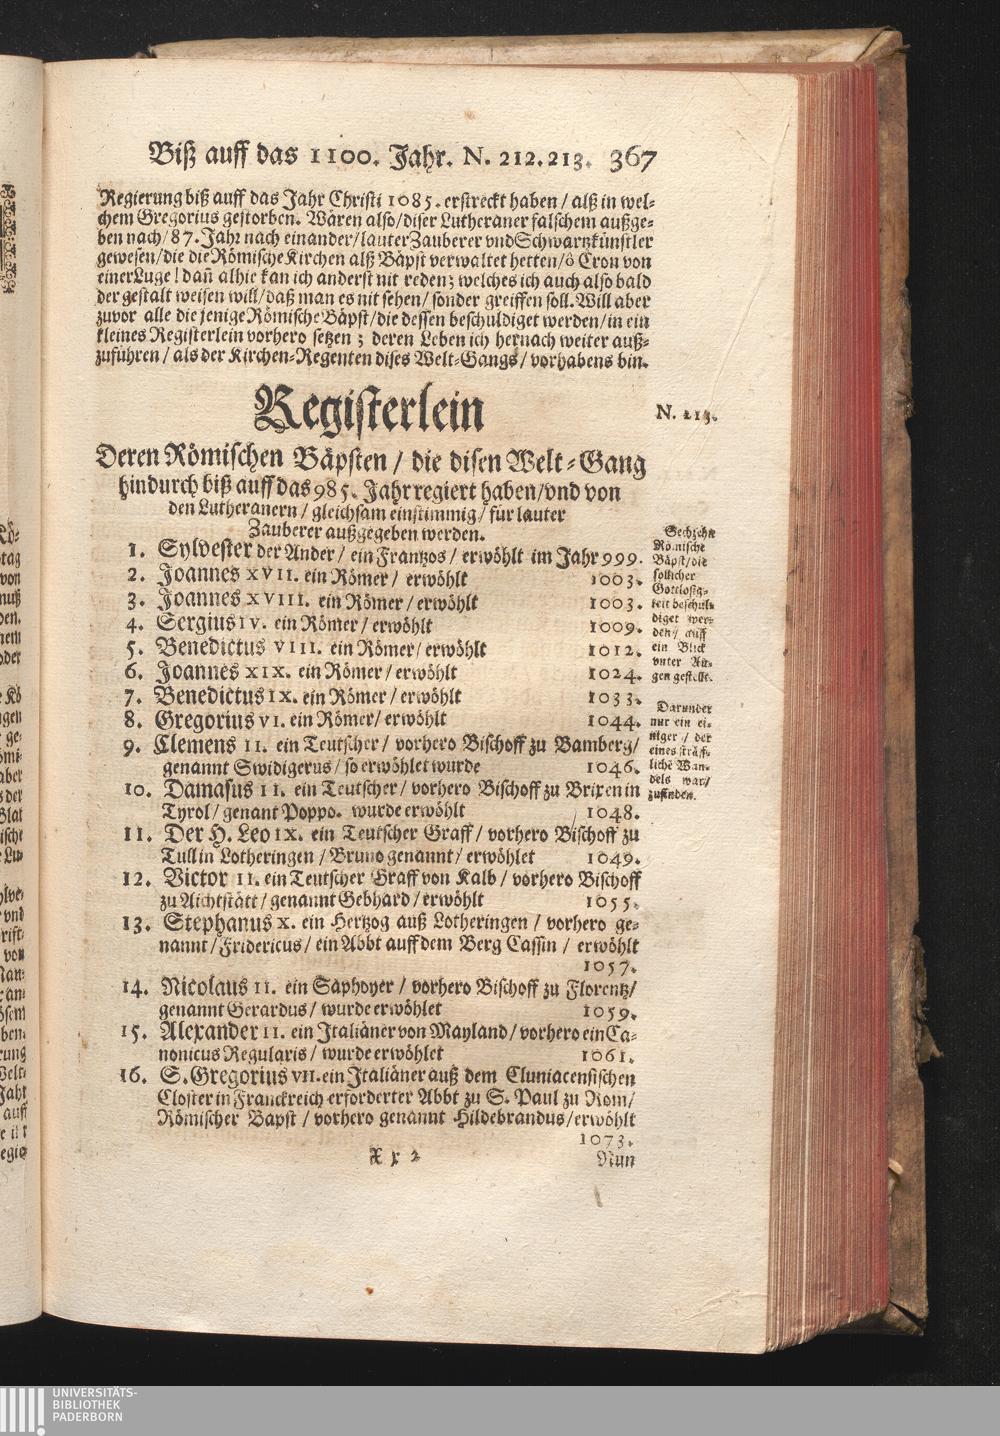 Biß auff das 1100. Jahr. N. 212.213. 367
Regierung biß auff das Jahr Christi 1085. erstreckt haben / alß in wel-
chem Gregorius gestorben. Wären also / diser Lutheraner falschem außge-
ben nach / 87. Jahr nach einander / lauter Zauberer vnd Schwartzkünstler
gewesen / die die Römische Kirchen alß Bäpst verwaltet hetten / ô Cron von
einer Luge! dañ alhie kan ich anderst nit reden; welches ich auch also bald
der gestalt weisen will / daß man es nit sehen / sonder greiffen soll. Will aber
zuvor alle die jenige Römische Bäpst / die dessen beschuldiget werden / in ein
kleines Registerlein vorhero setzen ; deren Leben ich hernach weiter auß-
zuführen / als der Kirchen-Regenten dises Welt-Gangs / vorhabens bin.
Registerlein
N. 213.
Deren Römischen Bäpsten / die disen Welt-Gang
hindurch biß auff das 985. Jahr regiert haben / vnd von
den Lutheranern / gleichsam einstimmig / für lauter
Zauberer außgegeben werden.
1. Sylvester der Ander / ein Frantzos / erwöhlt im Jahr 999.
2. Joannes XVII. ein Römer / erwöhlt 1003.
3. Joannes XVIII. ein Römer / erwöhlt 1003.
4. Sergius IV. ein Römer / erwöhlt 1009.
5. Benedictus VIII. ein Römer / erwöhlt 1012.
6. Joannes XIX. ein Römer / erwöhlt 1024.
7. Benedictus IX. ein Römer / erwöhlt 1033.
8. Gregorius VI. ein Römer / erwöhlt 1044.
9. Clemens II. ein Teutscher / vorhero Bischoff zu Bamberg /
genannt Swidigerus / so erwöhlet wurde 1046.
10. Damasus II. ein Teutscher / vorhero Bischoff zu Brixen in
Tyrol / genant Poppo. wurde erwöhlt 1048.
11. Der H. Leo IX. ein Teutscher Graff / vorhero Bischoff zu
Tull in Lotheringen / Bruno genannt / erwöhlet 1049.
12. Victor II. ein Teutscher Graff von Kalb / vorhero Bischoff
zu Aichtstätt / genannt Gebhard / erwöhlt 1055.
13. Stephanus X. ein Hertzog auß Lotheringen / vorhero ge-
nannt / Fridericus / ein Abbt auff dem Berg Cassin / erwöhlt
1057.
14. Nicolaus II. ein Saphoyer / vorhero Bischoff zu Florentz /
genannt Gerardus / wurde erwöhlet 1059.
15. Alexander II. ein Italiäner von Mayland / vorhero ein Ca-
nonicus Regularis / wurde erwöhlet 1061.
16. S. Gregorius VII. ein Italiäner auß dem Cluniacensischen
Closter in Franckreich erforderter Abbt zu S. Paul zu Rom /
Römischer Bapst / vorhero genannt Hildebrandus / erwöhlt
1073.
Xx 2 Nun
Sechzehn
Römische
Bäpst / die
sollicher
Gottlosig-
keit beschul-
diget wer-
den / auff
ein Blick
vnter Au-
gen gestellt.
Darunder
nur ein ei-
niger / der
eines sträff-
liche Wan-
dels war /
zufinden.
UNIVERSITÄTS-
BIBLIOTHEK
PADERBORN